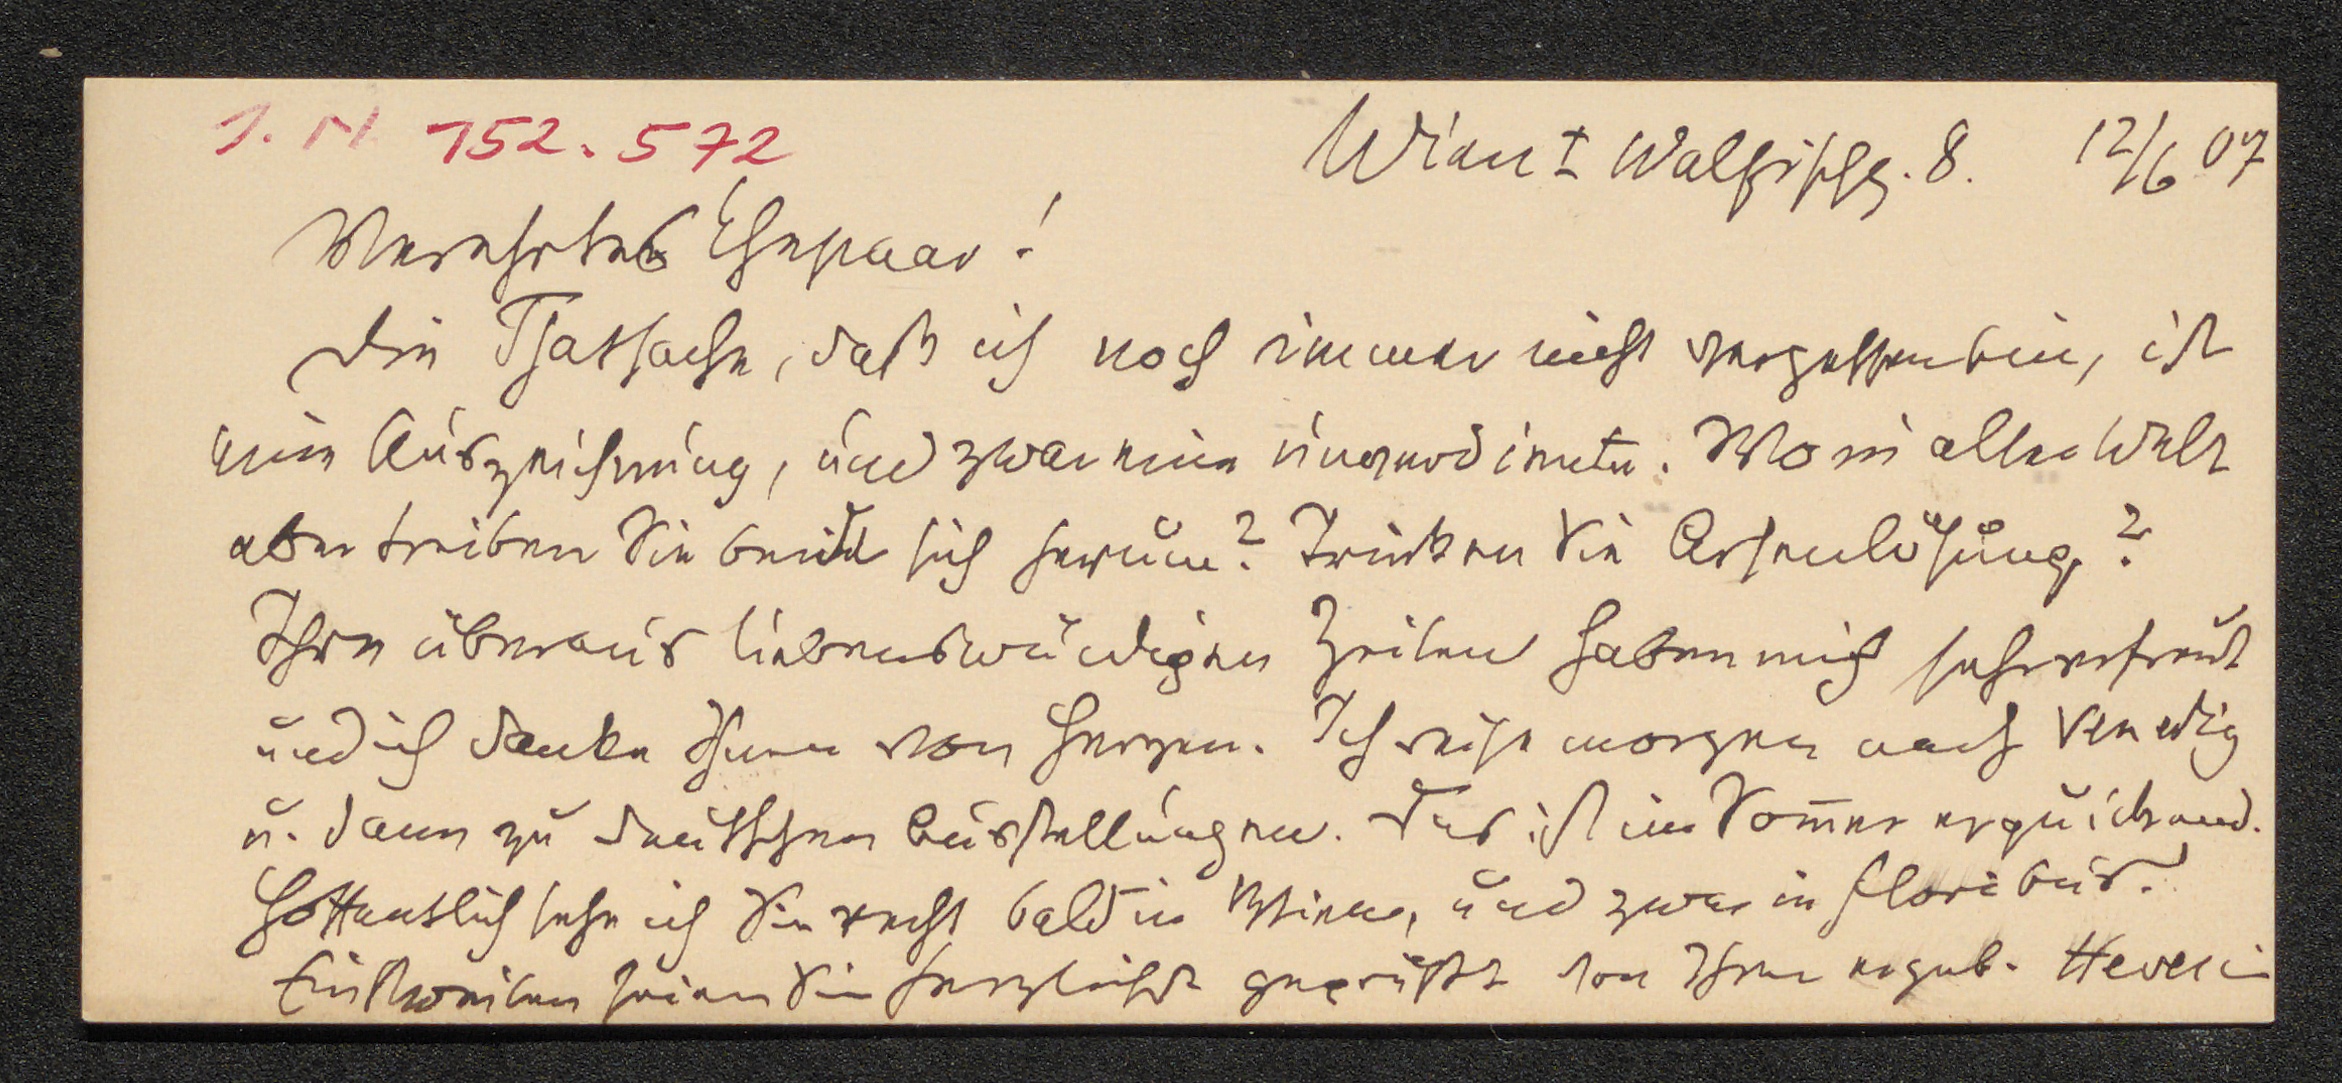 J. N 152.572
Wien I Walfischg. 8. 12/6 07
Verehrtes Ehepaar!
Die Thatsache, daß ich noch immer nicht vergessen bin, ist
eine Auszeichnung, und zwar eine unverdiente. Wo in aller Welt
aber treiben Sie beide sich herum? Trinken Sie Arsenlösung?
Ihre überaus liebenswürdigen Zeilen haben mich sehr erfreut
und ich danke Ihnen von Herzen. Ich reise morgen nach Venedig
u. dann zu deutschen Ausstellungen. Das ist im Som̅er erquickend.
Hoffentlich sehe ich Sie recht bald in Wien, und zwar in floribus.
Einstweilen seien Sie herzlichst gegrüßt von Ihrem ergeb. Hevesi